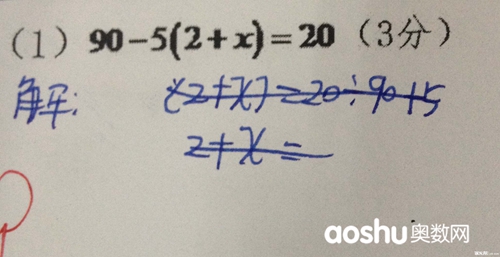 (1) 90-5(2+x)=20 (3分)
解: (2+x)=20÷90+5
2+x=
aoshu奥数网